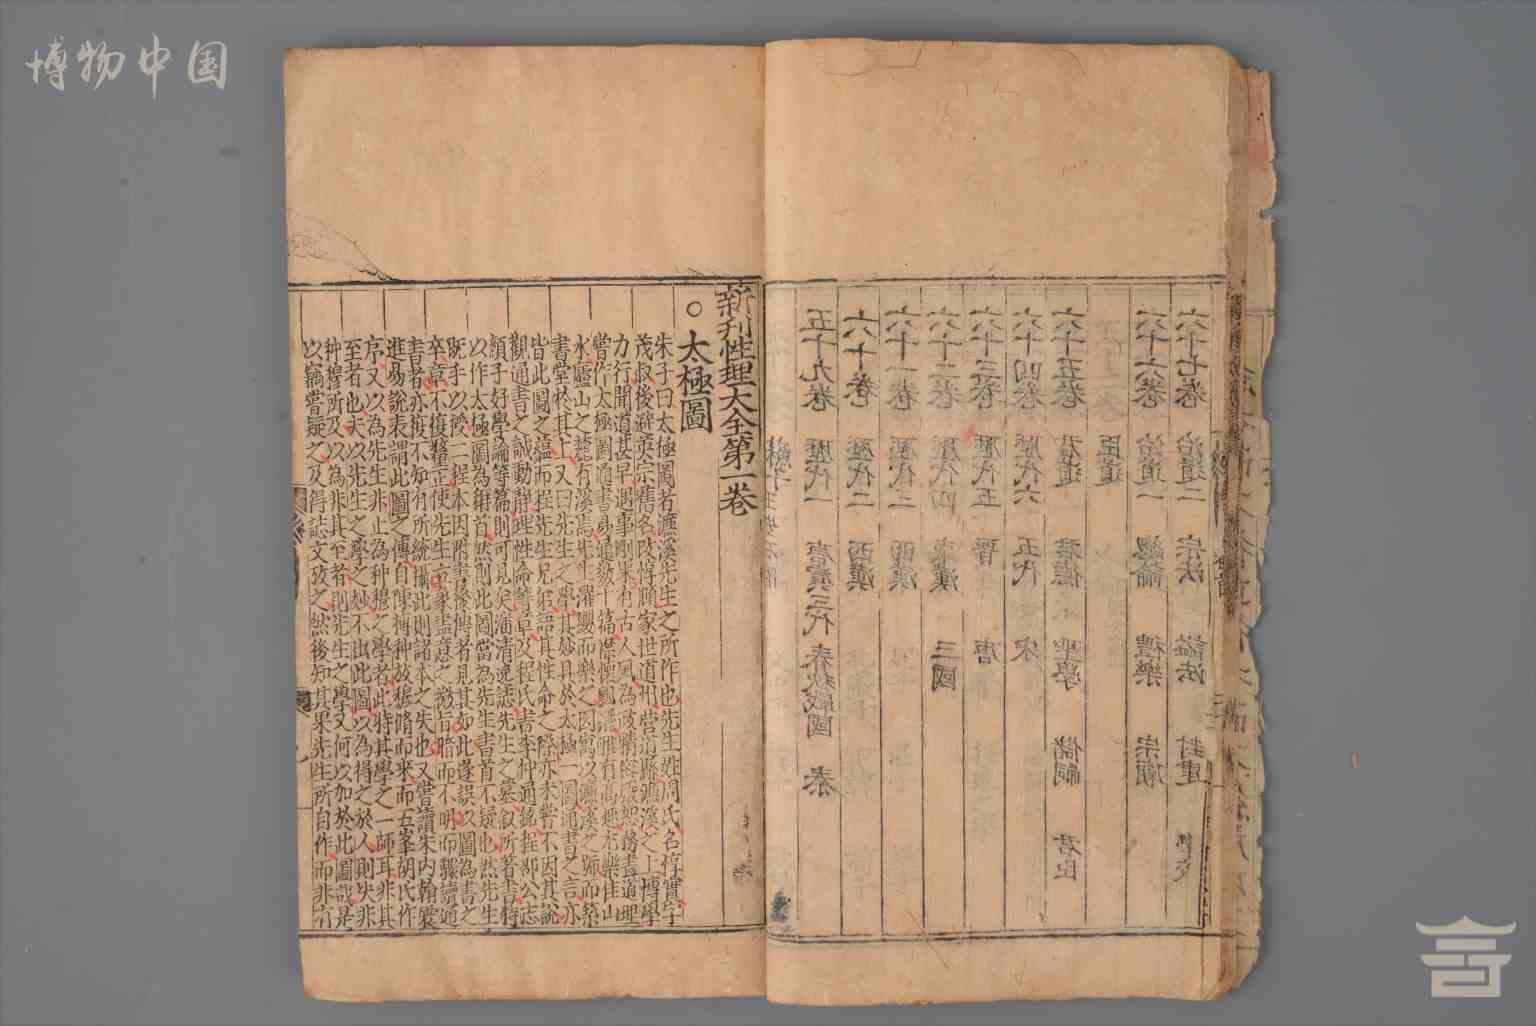 博物中国
六十七卷 治道二 宗法 諡法 封建 學校
六十六卷 治道一 總論 禮樂 宗廟
臣道
六十五卷 君道 君德 聖學 儲嗣 君臣
六十四卷 歷代六 五代 宋
六十三卷 歷代五 晉 唐
六十二卷 歷代四 東漢 三國
六十一卷 歷代三 西漢
六十卷 歷代二 西漢
五十九卷 歷代一 唐虞三代 春秋戰國 秦
新刊性理大全第一卷
○太極圖
朱子曰太極圖者濂溪先生之所作也先生姓周氏名惇實字
茂叔後避英宗舊名改惇頤家世道州營道縣濂溪之上博學
力行聞道甚早遇事剛果有古人風為政精密嚴恕務盡道理
嘗作太極圖通書易通數十篇襟懷飄洒雅有高趣尤樂佳山
水廬山之麓有溪焉先生濯纓而樂之因寓以濂溪之號而築
書堂於其上又曰先生之學其妙具於太極一圖通書之言亦
皆此圖之蘊而程先生兄弟語及性命之際亦未嘗不因其說
觀通書之誠動靜理性命等章及程氏書李仲通銘程邵公志
顏子好學論等篇則可見矣潘清逸誌先生之墓叙所著書特
以作太極圖為稱首然則此圖當為先生書首不疑也然先生
既手以授二程本因附書後傳者見其如此遂誤以圖為書之
卒章不復釐正使先生立象盡意之微旨暗而不明而驟讀通
書者亦復不知有所統攝此則諸本之失也又嘗讀朱内翰震
進易說表謂此圖之傳自陳摶种放穆脩而來而五峯胡氏作
序又以為先生非止為种穆之學者此特其學之一師耳非其
至者也夫以先生之學之妙不出此圖以為得之於人則決非
种穆所及以為非其至者則先生之學又何以加於此圖哉是
以竊嘗疑之及得誌文攷之然後知其果先生所自作而非有